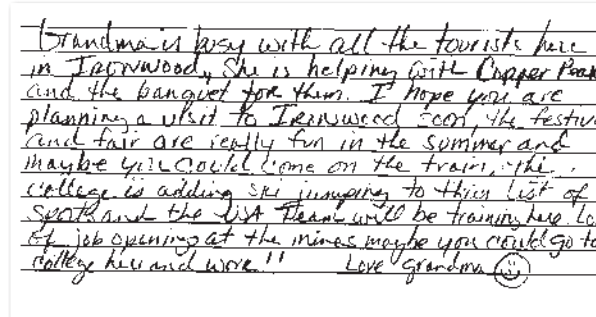 Grandma is busy with all the tourists here
in Ironwood, She is helping with Copper Peak
and the banquet for them. I hope you are
planning a visit to Ironwood soon, the festiv
and fair are really fun in the summer and
maybe you could come on the train, the
college is adding ski jumping to their list of
sports and the USA Team will be training here. Lo
of job opening at the mines maybe you could go to
college here and work!! Love grandma